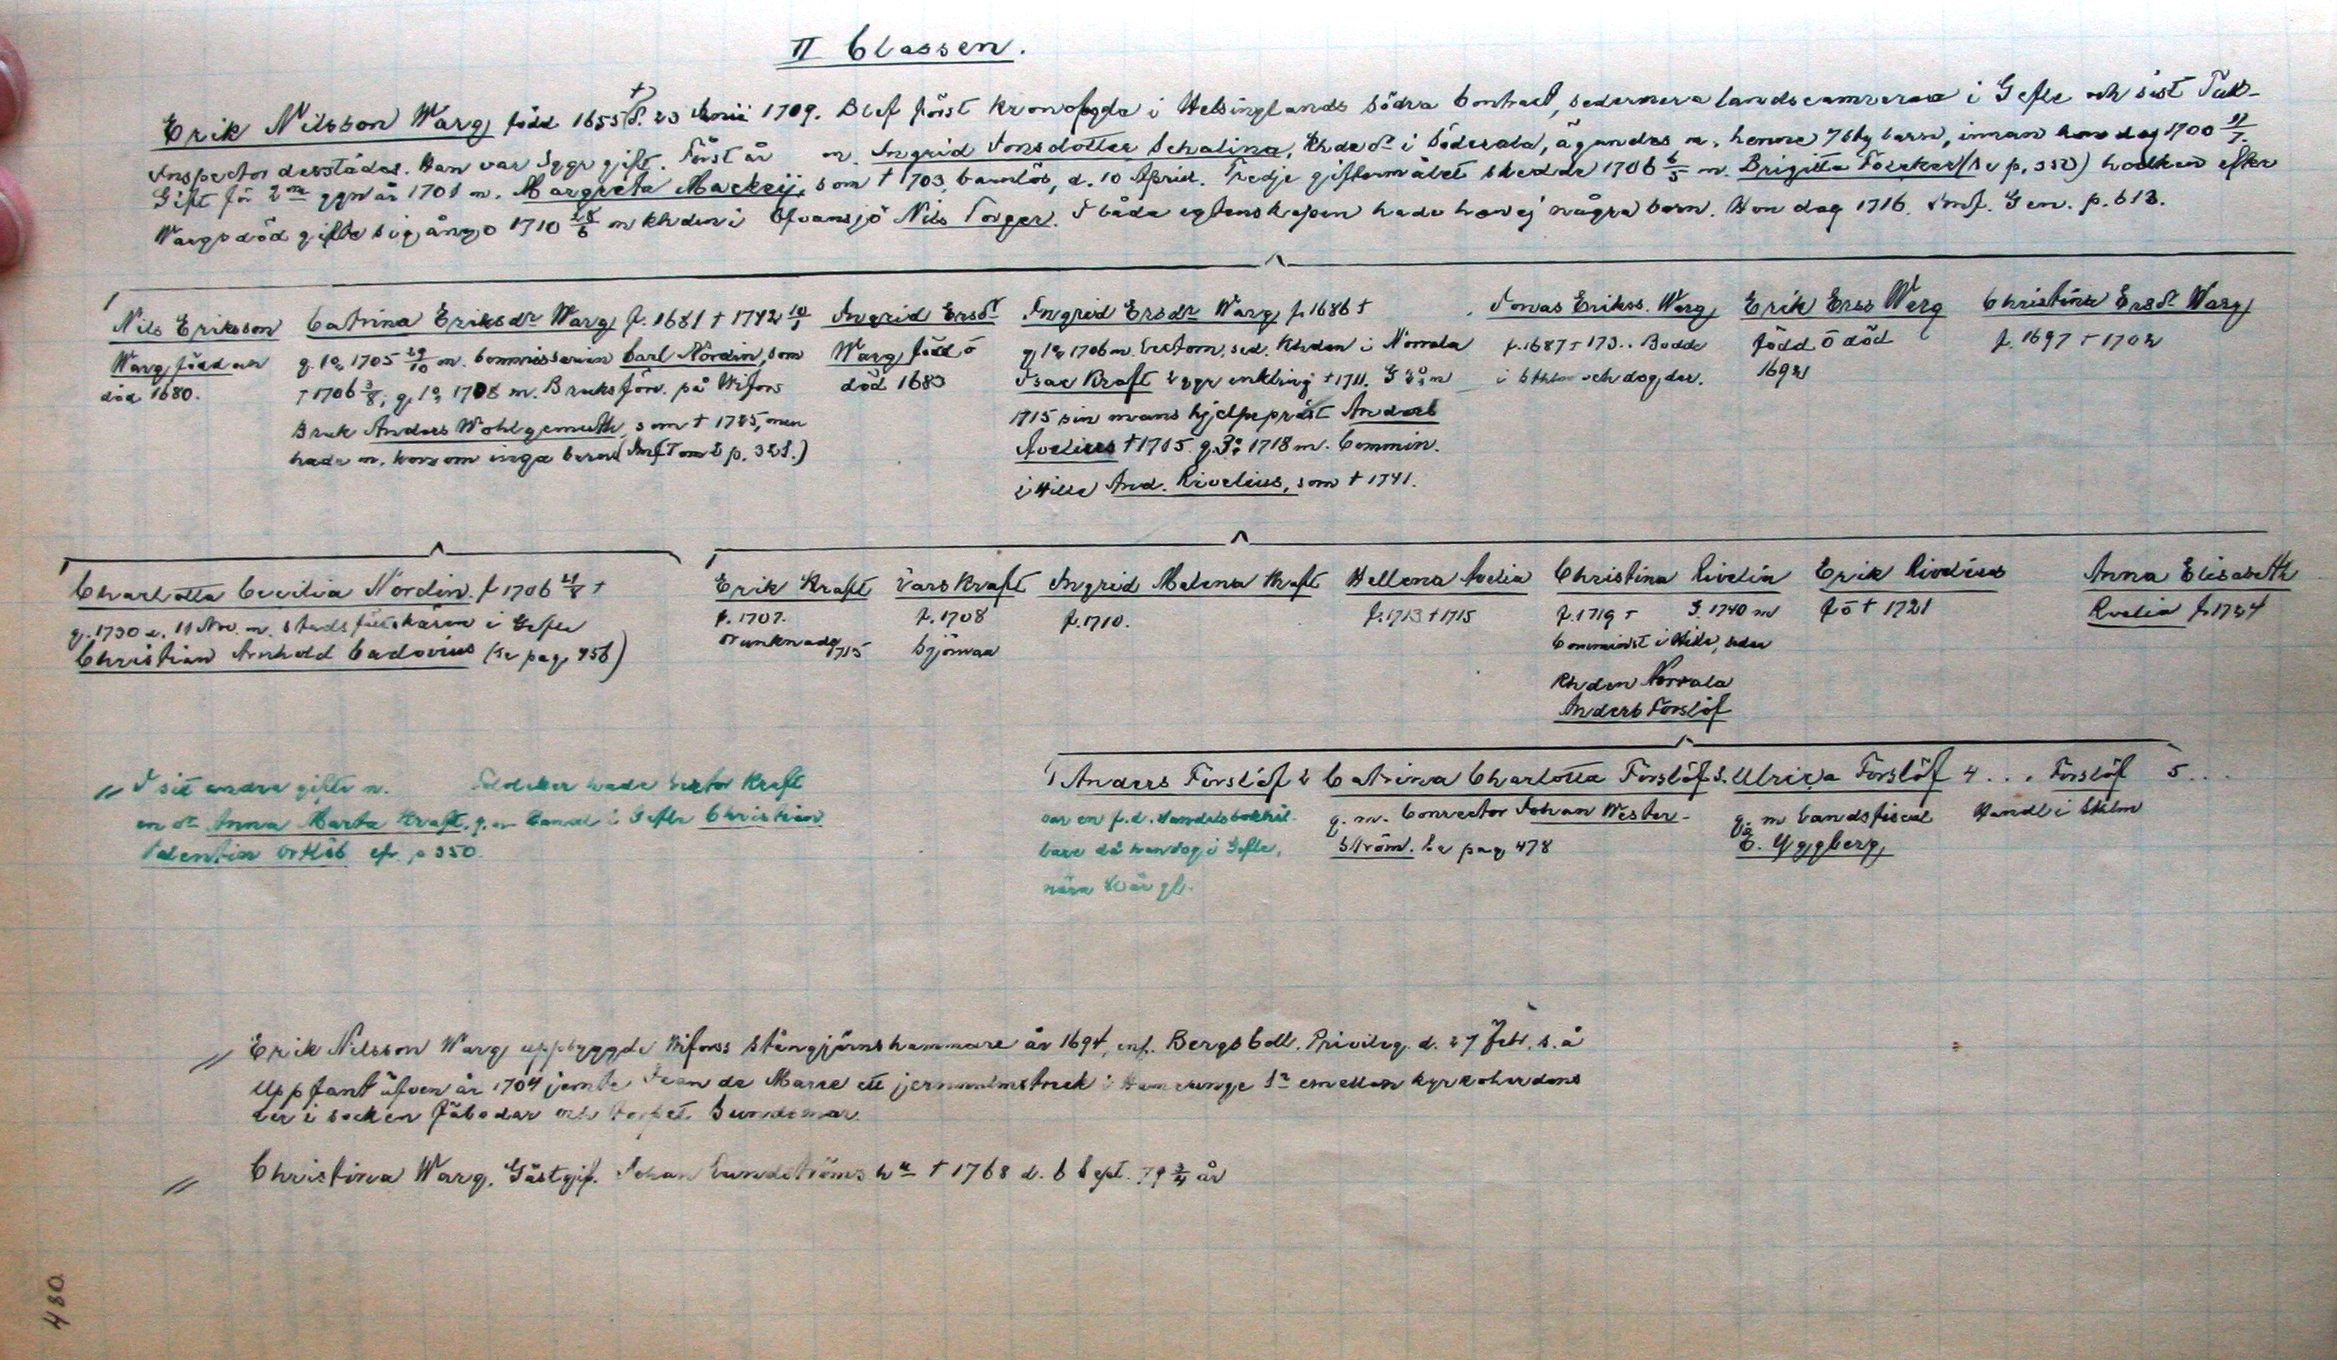 II Classen.
Erik Nilsson Warg född 1655 † d. 23 Junii 1709. Blef först kronofogde i Helsinglands Södra Contract, sedermera landscamrerare i Gefle och sist Tull-
Inspector desstädes. Han var 3ggr gift. Först år m. Ingrid Jonsdotter Schalina, Khdedr i Söderala, ägandes m. henne 7 st barn, innan hon dog 1700 11/7
Gift för 2m ggn år 1701 m. Margreta Mackeij, som † 703, barnlös, d. 10 April. Tredje giftermålet skedde 1706 6/5 m. Brigitta Fölcker (se p. 350) hvilken efter
Wargs död gifte sig ånyo 1710 28/6 m Khden i Ofvansjö Nils Torger. I båda egtenskapen hade hon ej några barn. Hon dog 1716. Jmf. Gen. p. 613.
Nils Eriksson
Warg född och
död 1680.
Catrina Eriksdr Warg f. 1681 † 1742 10/1
g. 1o 1705 29/10 m. Commissarien Carl Nordin, som
† 1706 3/8, g. 1o 1708 m. Bruksförv. på Wifors
Bruk Anders Wohlgemuth, som † 1725, men
hade m. honom inga barn (Jmf Tom 2 p. 321.)
Ingrid Ersdr
Warg född o
död 1683
Ingrid Ersdr Warg f. 1686 †
g. 1o 1706 m. Lectorn, sed. Khden i Norrala
Isac Kraft 2 ggr enkling † 1711. G 2o m
1715 sin mans hjelpepräst Anders
Avelius † 1715. g. 3o 1718 m. Commin.
i Hille And. Rivelius, som † 1741.
Jonas Erikss. Warg
f. 1687 † 173.. Bodde
i Sthlm och dog der.
Erik Erss Warg
född o död
1692
Christina Ersdr Warg
f. 1697 † 1702
Charlotta Cecilia Nordin f 1706 21/8 †
g. 1730 d. 11 Nov. m. Stadsfältskären i Gefle
Christian Arnhold Cadovius (se pag. 456)
Erik Kraft
f. 1707.
Drunknade 1715
Lars Kraft
f. 1708
Sjöman
Ingrid Malena Kraft
f. 1710.
Hellena Avelia
f. 1713 † 1715
Christina Rivelia
f. 1719 † G. 1740 m
Comminist i Hille, sedan
Khden Norrala
Anders Forslöf
Erik Rivelius
f o † 1721
Anna Elisabeth
Rvelia f. 1724
// I sitt andra gifte m. Fölcker hade Lector Kraft
en dr Anna Marta Kraft, g. m Handl i Gefle Christian
Valentin p 350.
1 Anders Forslöf
var en f.d. Handelsbokhål-
lare då han dog i Gefle,
nära 80 år gl.
2 Catrina Charlotta Forslöf
g. m. Conrector Johan Wester-
ström. Se pag 478
3. Ulrica Forslöf
g. m Landsfiscal
E. Yggberg
4 ... Forslöf
Handl i Sthlm
5 ...
// Erik Nilsson Warg uppbyggde Wiforss Stångjärnshammare år 1694, enl. Bergs Coll. Privileg. d. 27 Febr. s. å
Uppfant äfven år 1704 jemte Jean de Marre ett jernmalmstreck i Hamrånge Sn emellan kyrkoherdens
der i socken fäbodar och torpet Sundsmar.
// Christina Warg, Gästgif. Johan Lundströms hu † 1768 d. 6 Sept. 79 3/4 år
480